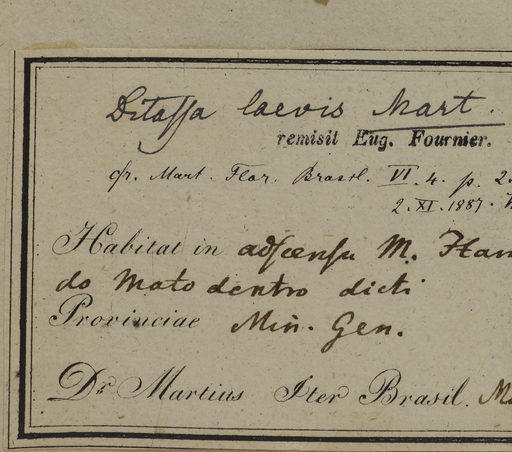 Ditassa laevis Mart.
remisit Eug. Fournier.
cfr. Mart. Flor. Brasil. VI. 4. p. 2
2. XI. 1887.
Habitat in adscensu M.
do Mato dentro dicti
Provinciae Min. Gen.
Dr. Martius Iter Brasil.